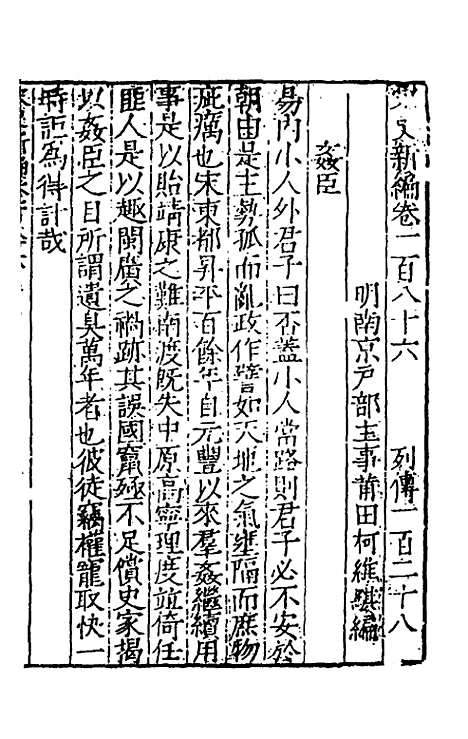 宋史新編卷一百八十六　列傳一百二十八
明南京戶部主事莆田柯維騏編
姦臣
易内小人外君子曰否蓋小人當路則君子必不安於
朝由是主勢孤而亂政作譬如天地之氣壅隔而庶物
疵癘也宋東都昇平百餘年自元豐以來羣姦繼續用
事是以貽靖康之難南渡既失中原高寧理度竝倚任
匪人是以趣閩廣之禍跡其誤國竄殛不足償史家揭
以姦臣之目所謂遺臭萬年者也彼徒竊權寵取快一
時詎爲得計哉